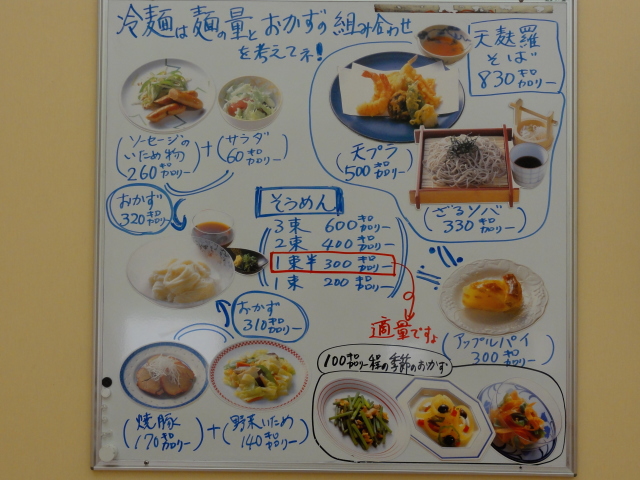 冷麺は麺の量とおかずの組み合わせ
を考えてネ!
天麩羅
そば
830キロカロリー
ソーセージの
いため物
260キロカロリー
+
サラダ
60キロカロリー
天プラ
500キロカロリー
ざるソバ
330キロカロリー
おかず
320キロカロリー
そうめん
3束 600キロカロリー
2束 400キロカロリー
1束半 300キロカロリー
1束 200キロカロリー
適量ですよ
おかず
310キロカロリー
アップルパイ
300キロカロリー
100キロカロリー程の季節のおかず
焼豚
170キロカロリー
+
野菜いため
140キロカロリー